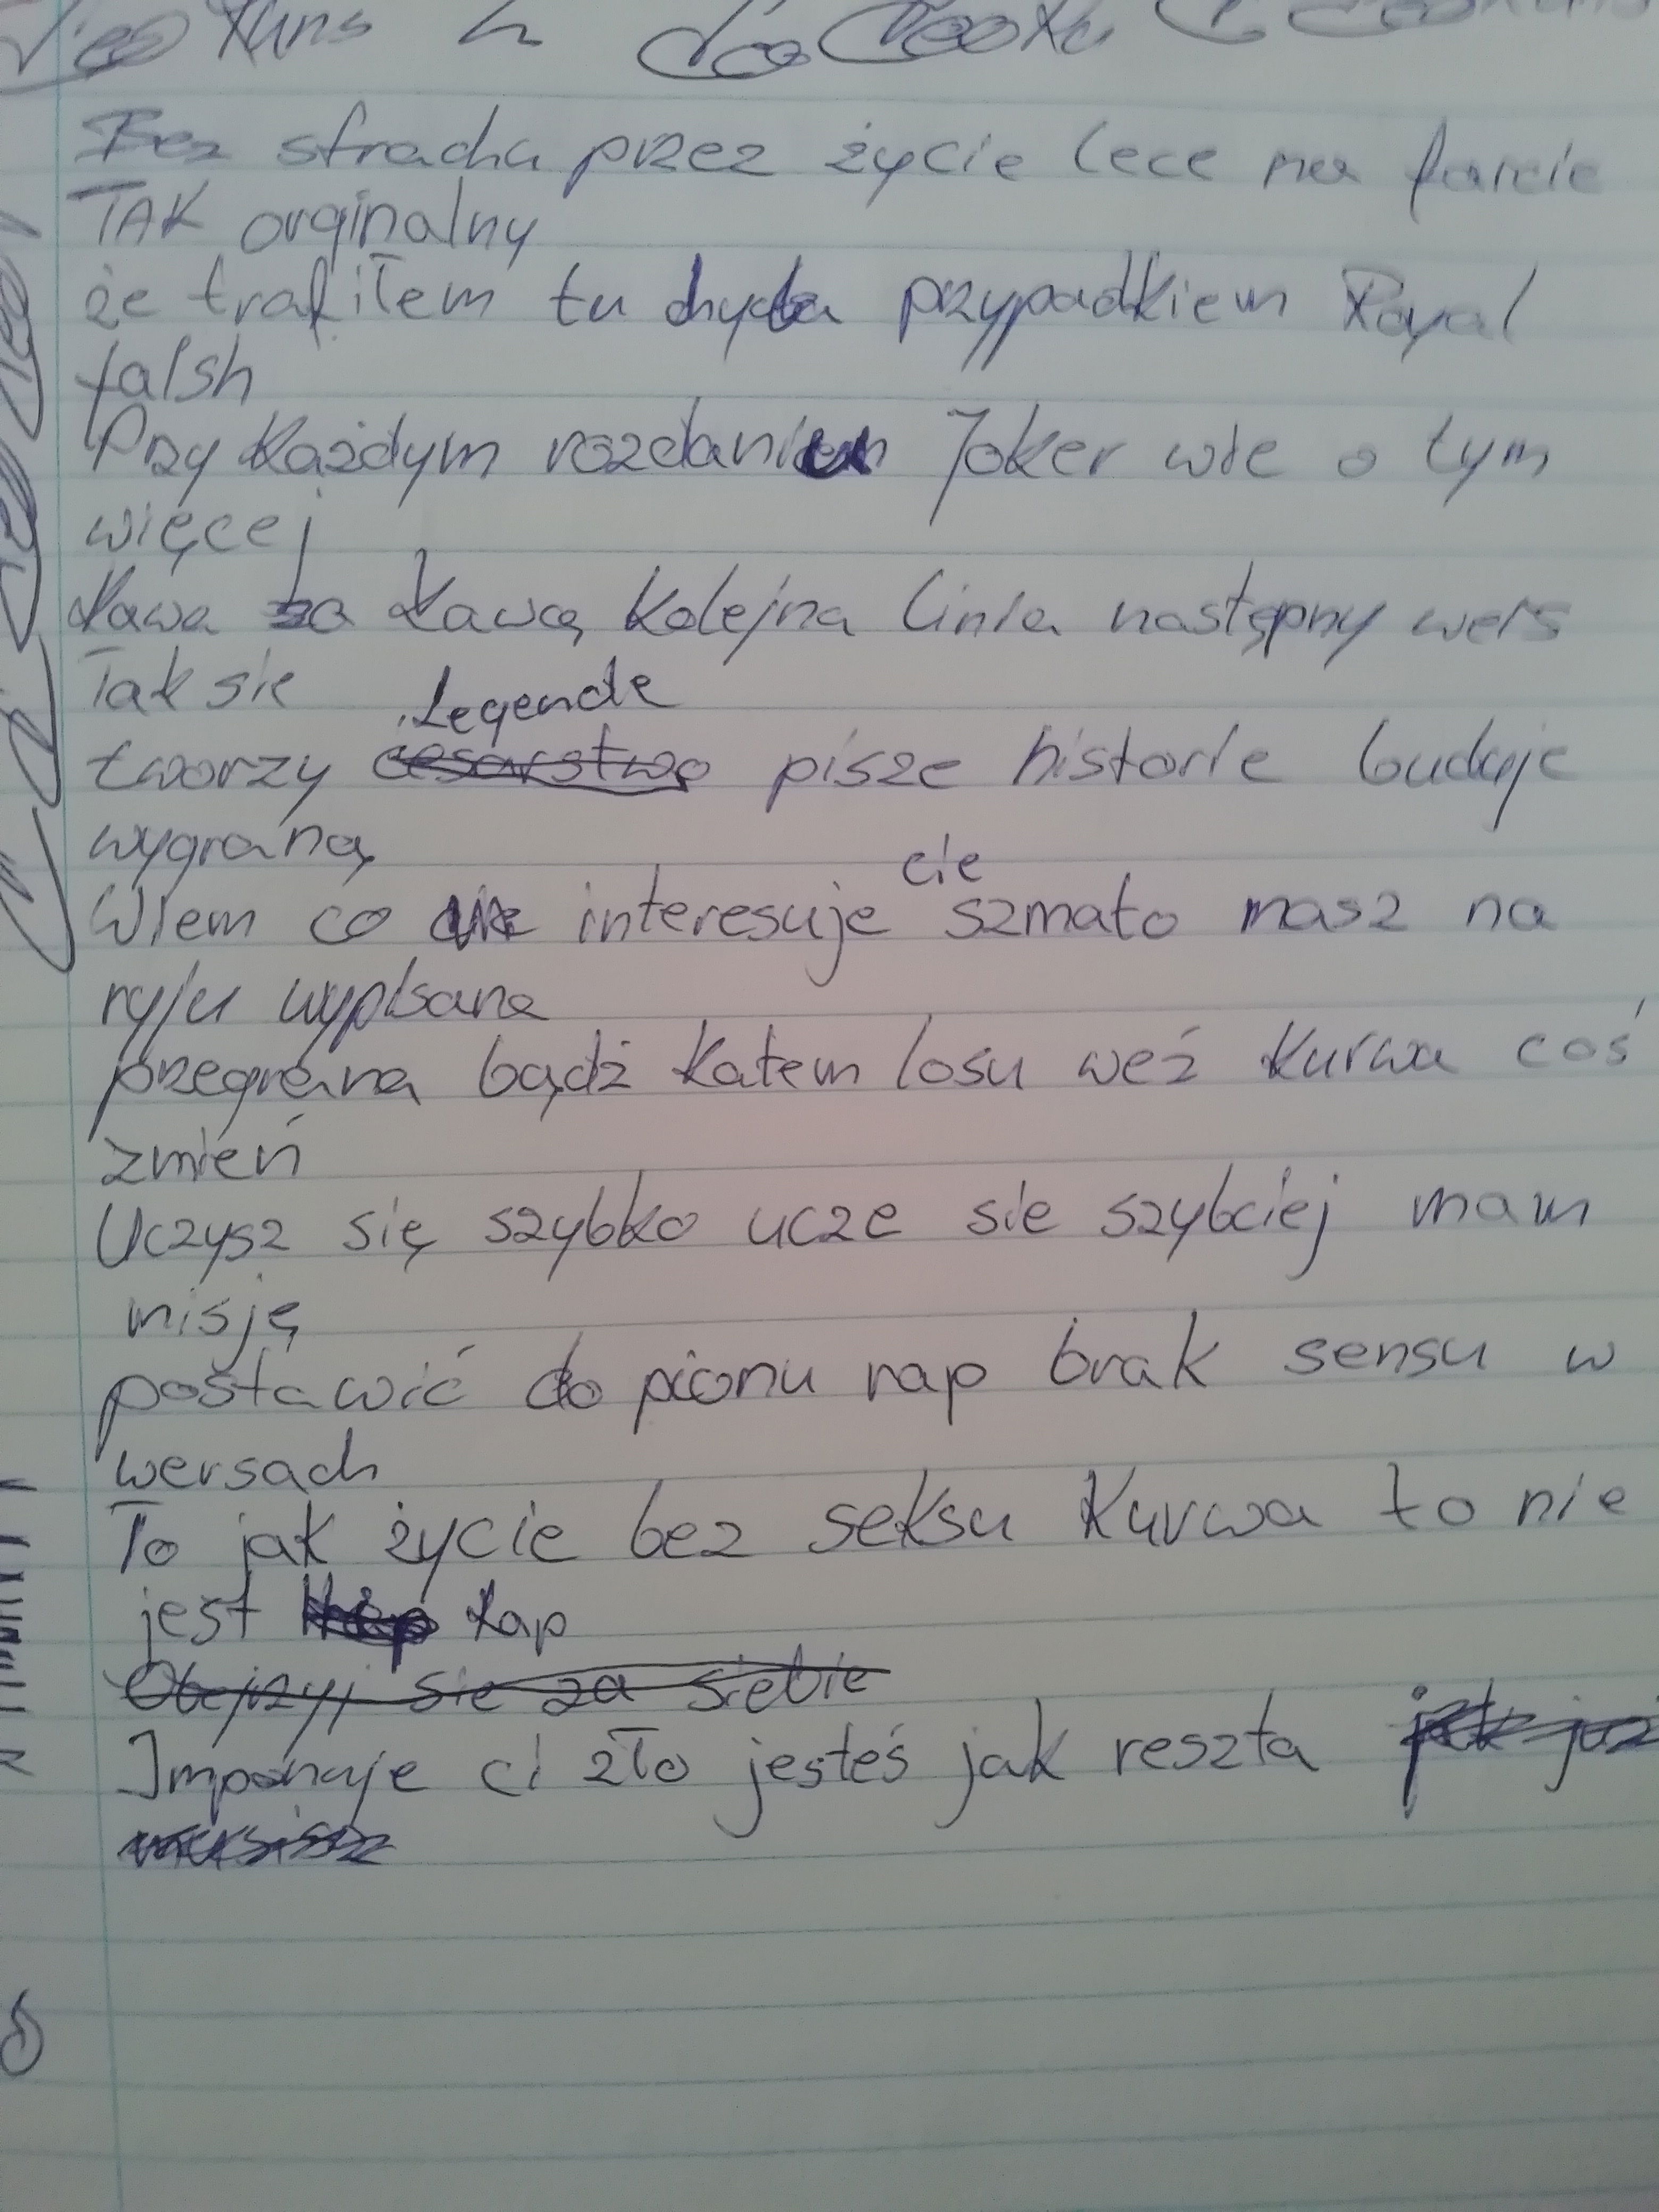 Bez stracha przez życie lece na farcie
TAK orginalny
że trafiłem tu chyba przypadkiem Royal
falsh
Przy każdym rozdaniu Joker wie o tym
więcej
Kawa za kawą kolejna linia następny wers
Tak sie
Legende
tworzy cesarstwo pisze historie buduje
wygraną
cie
Wiem co interesuje szmato masz na
ryju wypisane
przegrana bądź katem losu weź kurwa coś
zmień
Uczysz się szybko ucze sie szybciej mam
misję
postawić do pionu rap brak sensu w
wersach
To jak życie bez seksu kurwa to nie
jest Rap
Obejrzyj sie za siebie
Imponuje ci zło jesteś jak reszta